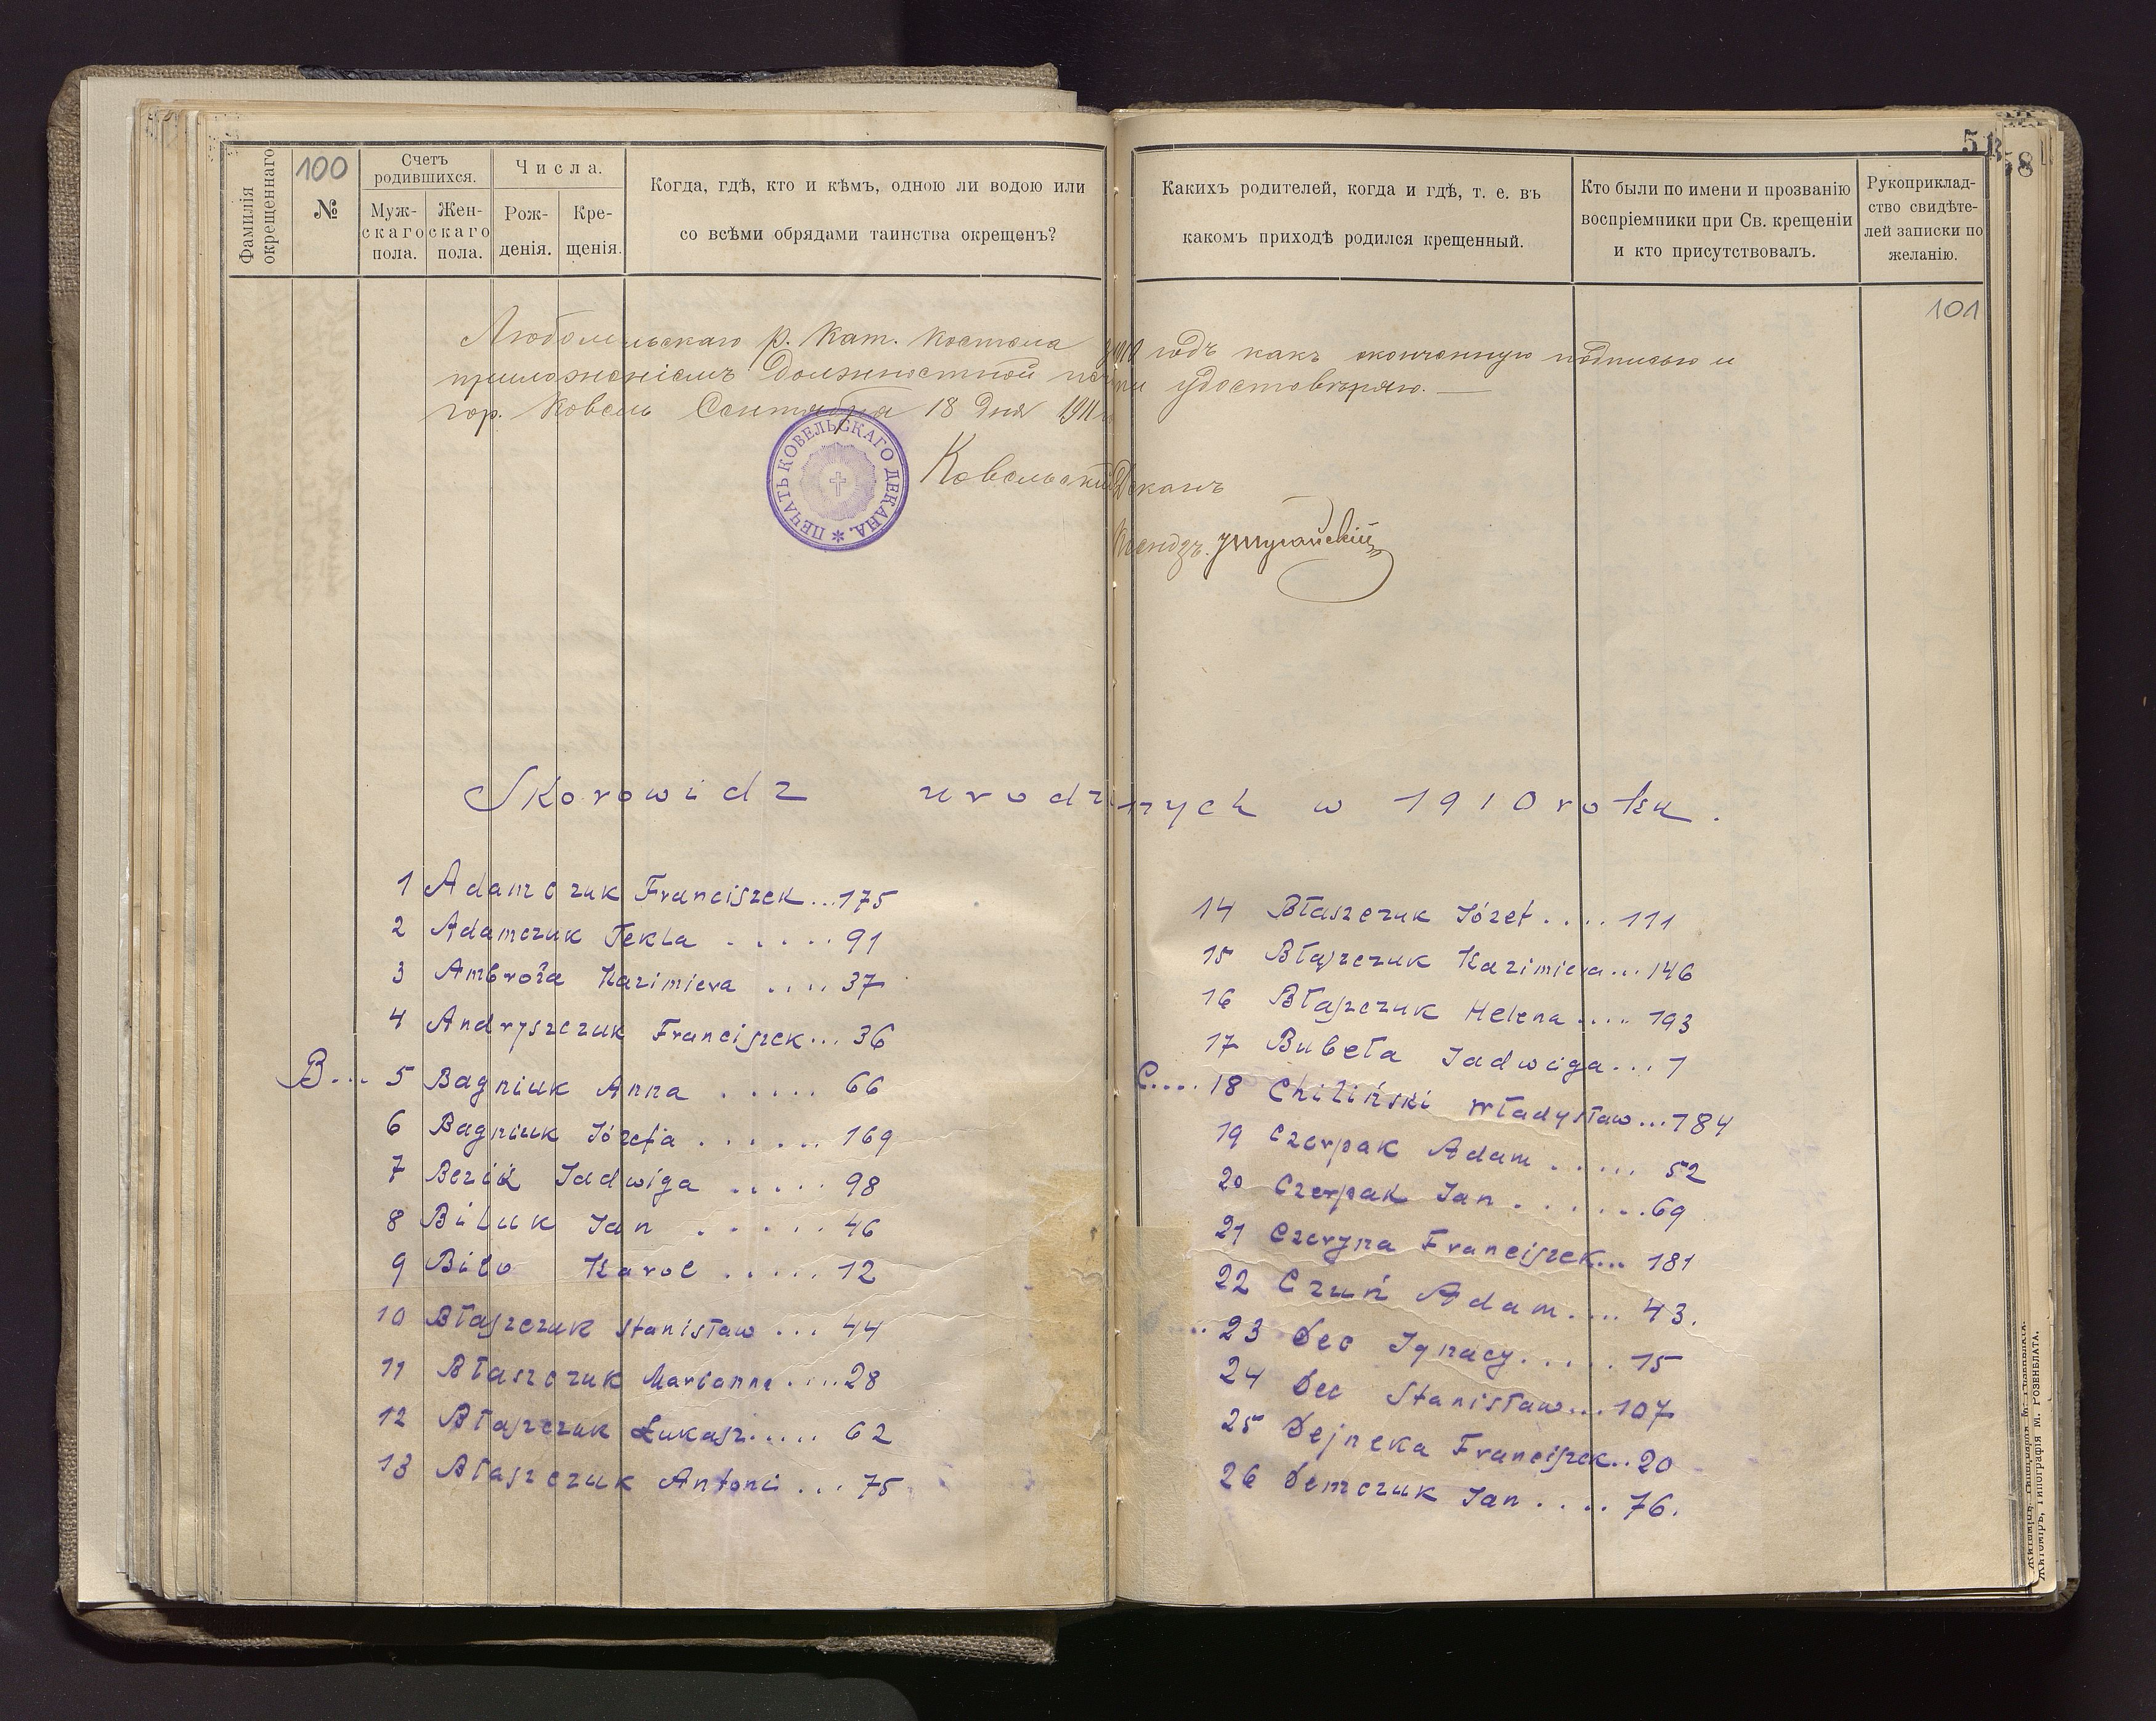 Фамилія
окрещеннаго
100
№
Счетъ
родившихся.
Муж-
скаго
пола.
Жен-
скаго
пола.
Числа.
Рож-
денія.
Кре-
щенія.
Когда, гдѣ, кто и кѣмъ, одною ли водою или
со всѣми обрядами таинства окрещенъ?
Любомльскаго р. Кат. Костела
приложеніемъ должностной
гор. Ковель Сентября 18 дня 1911
ПЕЧАТЬ КОВЕЛЬСКАГО ДЕКАНА. *
Ковельскій
Skorowidz urodz
1 Adamczuk Franciszek...175
2 Adamczuk Tekla ..... 91
3 Ambroża Kazimiera .... 37
4 Andryszczuk Franciszek... 36
B... 5 Bagniuk Anna ..... 66
6 Bagniuk Józefa ...... 169
7 Jadwiga ..... 98
8 Biluk Jan ..... 46
9 Bilo Karol ..... 12
10 Błaszczuk Stanisław ... 44
11 Błaszczuk Marianna ....28
12 Błaszczuk Łukasz..... 62
13 Błaszczuk Antoni ... 75
58
Какихъ родителей, когда и гдѣ, т. е. въ
какомъ приходѣ родился крещенный.
Кто были по имени и прозванію
воспріемники при Св. крещеніи
и кто присутствовалъ.
Рукоприклад-
ство свидѣте-
лей записки по
желанію.
101
годъ какъ оконченную подписью и
удостовѣряю. —
Деканъ
Ксендзъ.
nych w 1910 roku.
14 Błaszczuk Józef .... 111
15 Błaszczuk Kazimiera... 146
16 Błaszczuk Helena .... 193
17 Bubeła Jadwiga... 1
C.... 18 Chiliński Władysław...184
19 Czerpak Adam ..... 52
20 Czerpak Jan .......69
21 Czeryna Franciszek... 181
22 Czuń Adam.... 43.
.. 23 Dec Ignacy..... 15
24 Dec Stanisław...107
25 Dejneka Franciszek..20
26 Demczuk Jan .... 76.
Житоміръ, Типографія М. РОЗЕНБЛАТА.